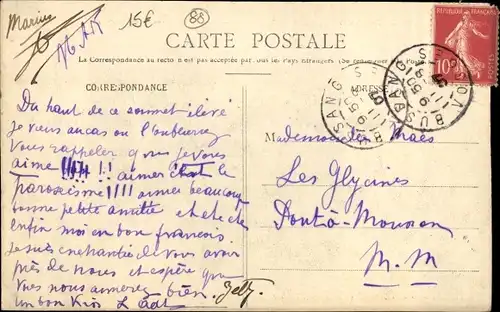 Marius
15€
88
CARTE POSTALE
La Correspondance au recto n'est pas acceptée par tous les Pays Étrangers
CORRESPONDANCE
RÉPUBLIQUE FRANÇAISE
10
BUSSANG
BUSSANG
Du haut de ce sommet élevé
je veux au cas ou l'oublieriez
Vous rappeler que je vous
aime !!!! !! aimer c'est le
paroxisme !!!! aimer beaucoup
bonne petite amitié
enfin moi en bon francois
je suis enchantée de vous avoir
près de nous et espère que
vous nous aimerez bien.
un bon
Mademoiselle Maës
Les Glycines
Pont-à-Mousson
M. M